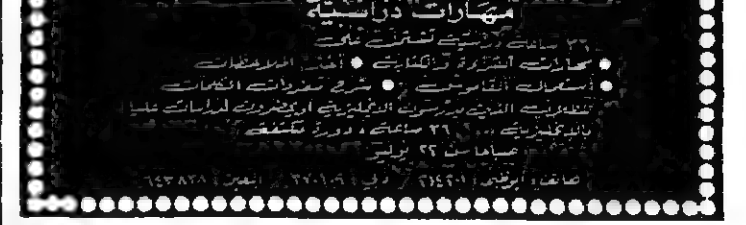 مهارات دراسية
٣٦ ساعة دراسية تشتمل على
• مهارات القراءة والكتابة • أخذ الملاحظات
• استعمال القاموس • شرح مفردات الكلمات
للطلاب الذين يدرسون الانجليزية أو يحضرون لدراسات عليا
بالانجليزية ... ٣٦ ساعة، دورة مكثفة
صباحا من ٢٢ يوليو
هاتف: أبوظبي: ٢١٤٢٠١ / دبي: ٣٧٠١٠٩ / العين: ٦٤٣٨٣٨